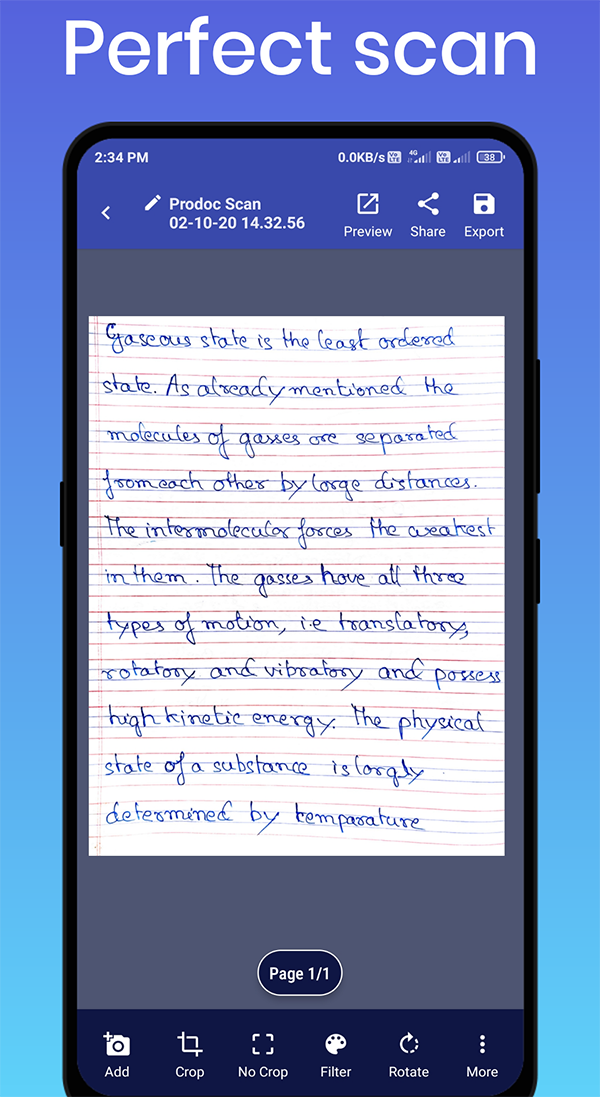 Perfect scan
2:34 PM
0.0KB/s
4G
38
Prodoc Scan
02-10-20 14.32.56
Preview
Share
Export
Gaseous state is the least ordered
state. As already mentioned the
molecules of gasses are separated
from each other by large distances.
The intermolecular forces the weakest
in them. The gasses have all three
types of motion, i.e translatory,
rotatory and vibratory and possess
high kinetic energy. The physical
state of a substance is largly
determined by temparature
Page 1/1
Add
Crop
No Crop
Filter
Rotate
More